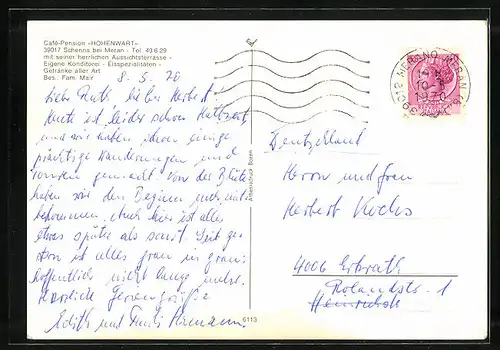 Café-Pension «HOHENWART»
39017 Schenna bei Meran - Tel. 49 6 29
mit seiner herrlichen Aussichtsterrasse -
Eigene Konditorei - Eisspezialitäten -
Getränke aller Art
Bes. Fam. Mair
8. 5. 70
Liebe Ruth, lieber Herbert!
Heute ist leider schon Halbzeit,
und wir haben schon einige
prächtige Wanderungen und
gemacht. Von der Blüte
haben wir den Beginn noch
bekommen. Auch hier ist alles
etwas später als sonst. Seit
ist alles grau in grau
hoffentlich nicht lange mehr.
Herzliche Feriengrüße
Edith und
39012 MERANO - MERAN
Deutschland
Herrn und Frau
Herbert Kochs
4006 Erkrath
Rolandstr. 1
Heinrichstr.
6113